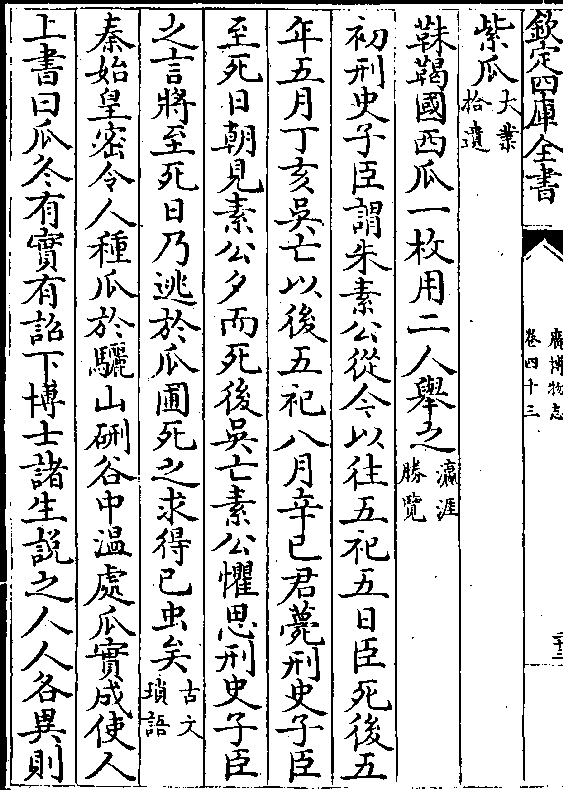 欽定四庫全書
廣博物志
卷四十三
紫瓜大業拾遺
靺鞨國西瓜一枚用二人舉之瀛涯勝覽
初刑史子臣謂朱素公從今以往五祀五日臣死後五
年五月丁亥吳亡以後五祀八月辛巳君薨刑史子臣
至死日朝見素公夕而死後吳亡素公懼思刑史子臣
之言將至死日乃逃於瓜圃死之求得已虫矣古文瑣語
秦始皇密令人種瓜於驪山硎谷中溫處瓜實成使人
上書曰瓜冬有實有詔下博士諸生說之人人各異則